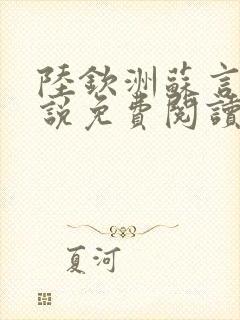 陸欽洲蘇言
說免費閱讀
夏河